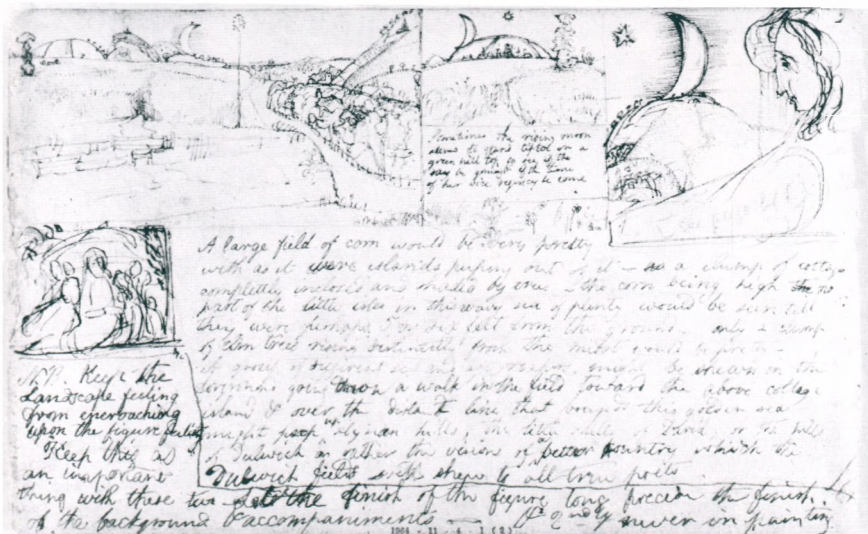 Sometimes the rising moon
seems to stand tiptoe on a
green hill top to see if the
day be going & if the time
of her vice regency be come
A large field of corn would be very pretty
with as it were islands peeping out of it — as a clump of cottages
completely inclosed and shaded by trees & the corn being high
part of the little isles in this wavy sea of plenty would be seen till
they were perhaps or six feet from the ground — a clump
of Elm trees rising distinctly from the midst would be pretty —
A group of different sex and age reapers might be shewn in the
foreground going down a walk in the field toward the above cottage
island & over the distant line that bounds this golden sea
might peep up elysian hills, the little hills of David, or the hills
of Dulwich or rather the visions of a better country which the
Dulwich fields will shew to all true poets
N.B. Keep the
Landscape feeling
from encroaching
upon the figure feeling
Keep this as
an important
thing with these two Let the finish of the figure long precede the finish
of the background & accompaniments — never in painting
1964 - 11 - 4 - 1 (2)